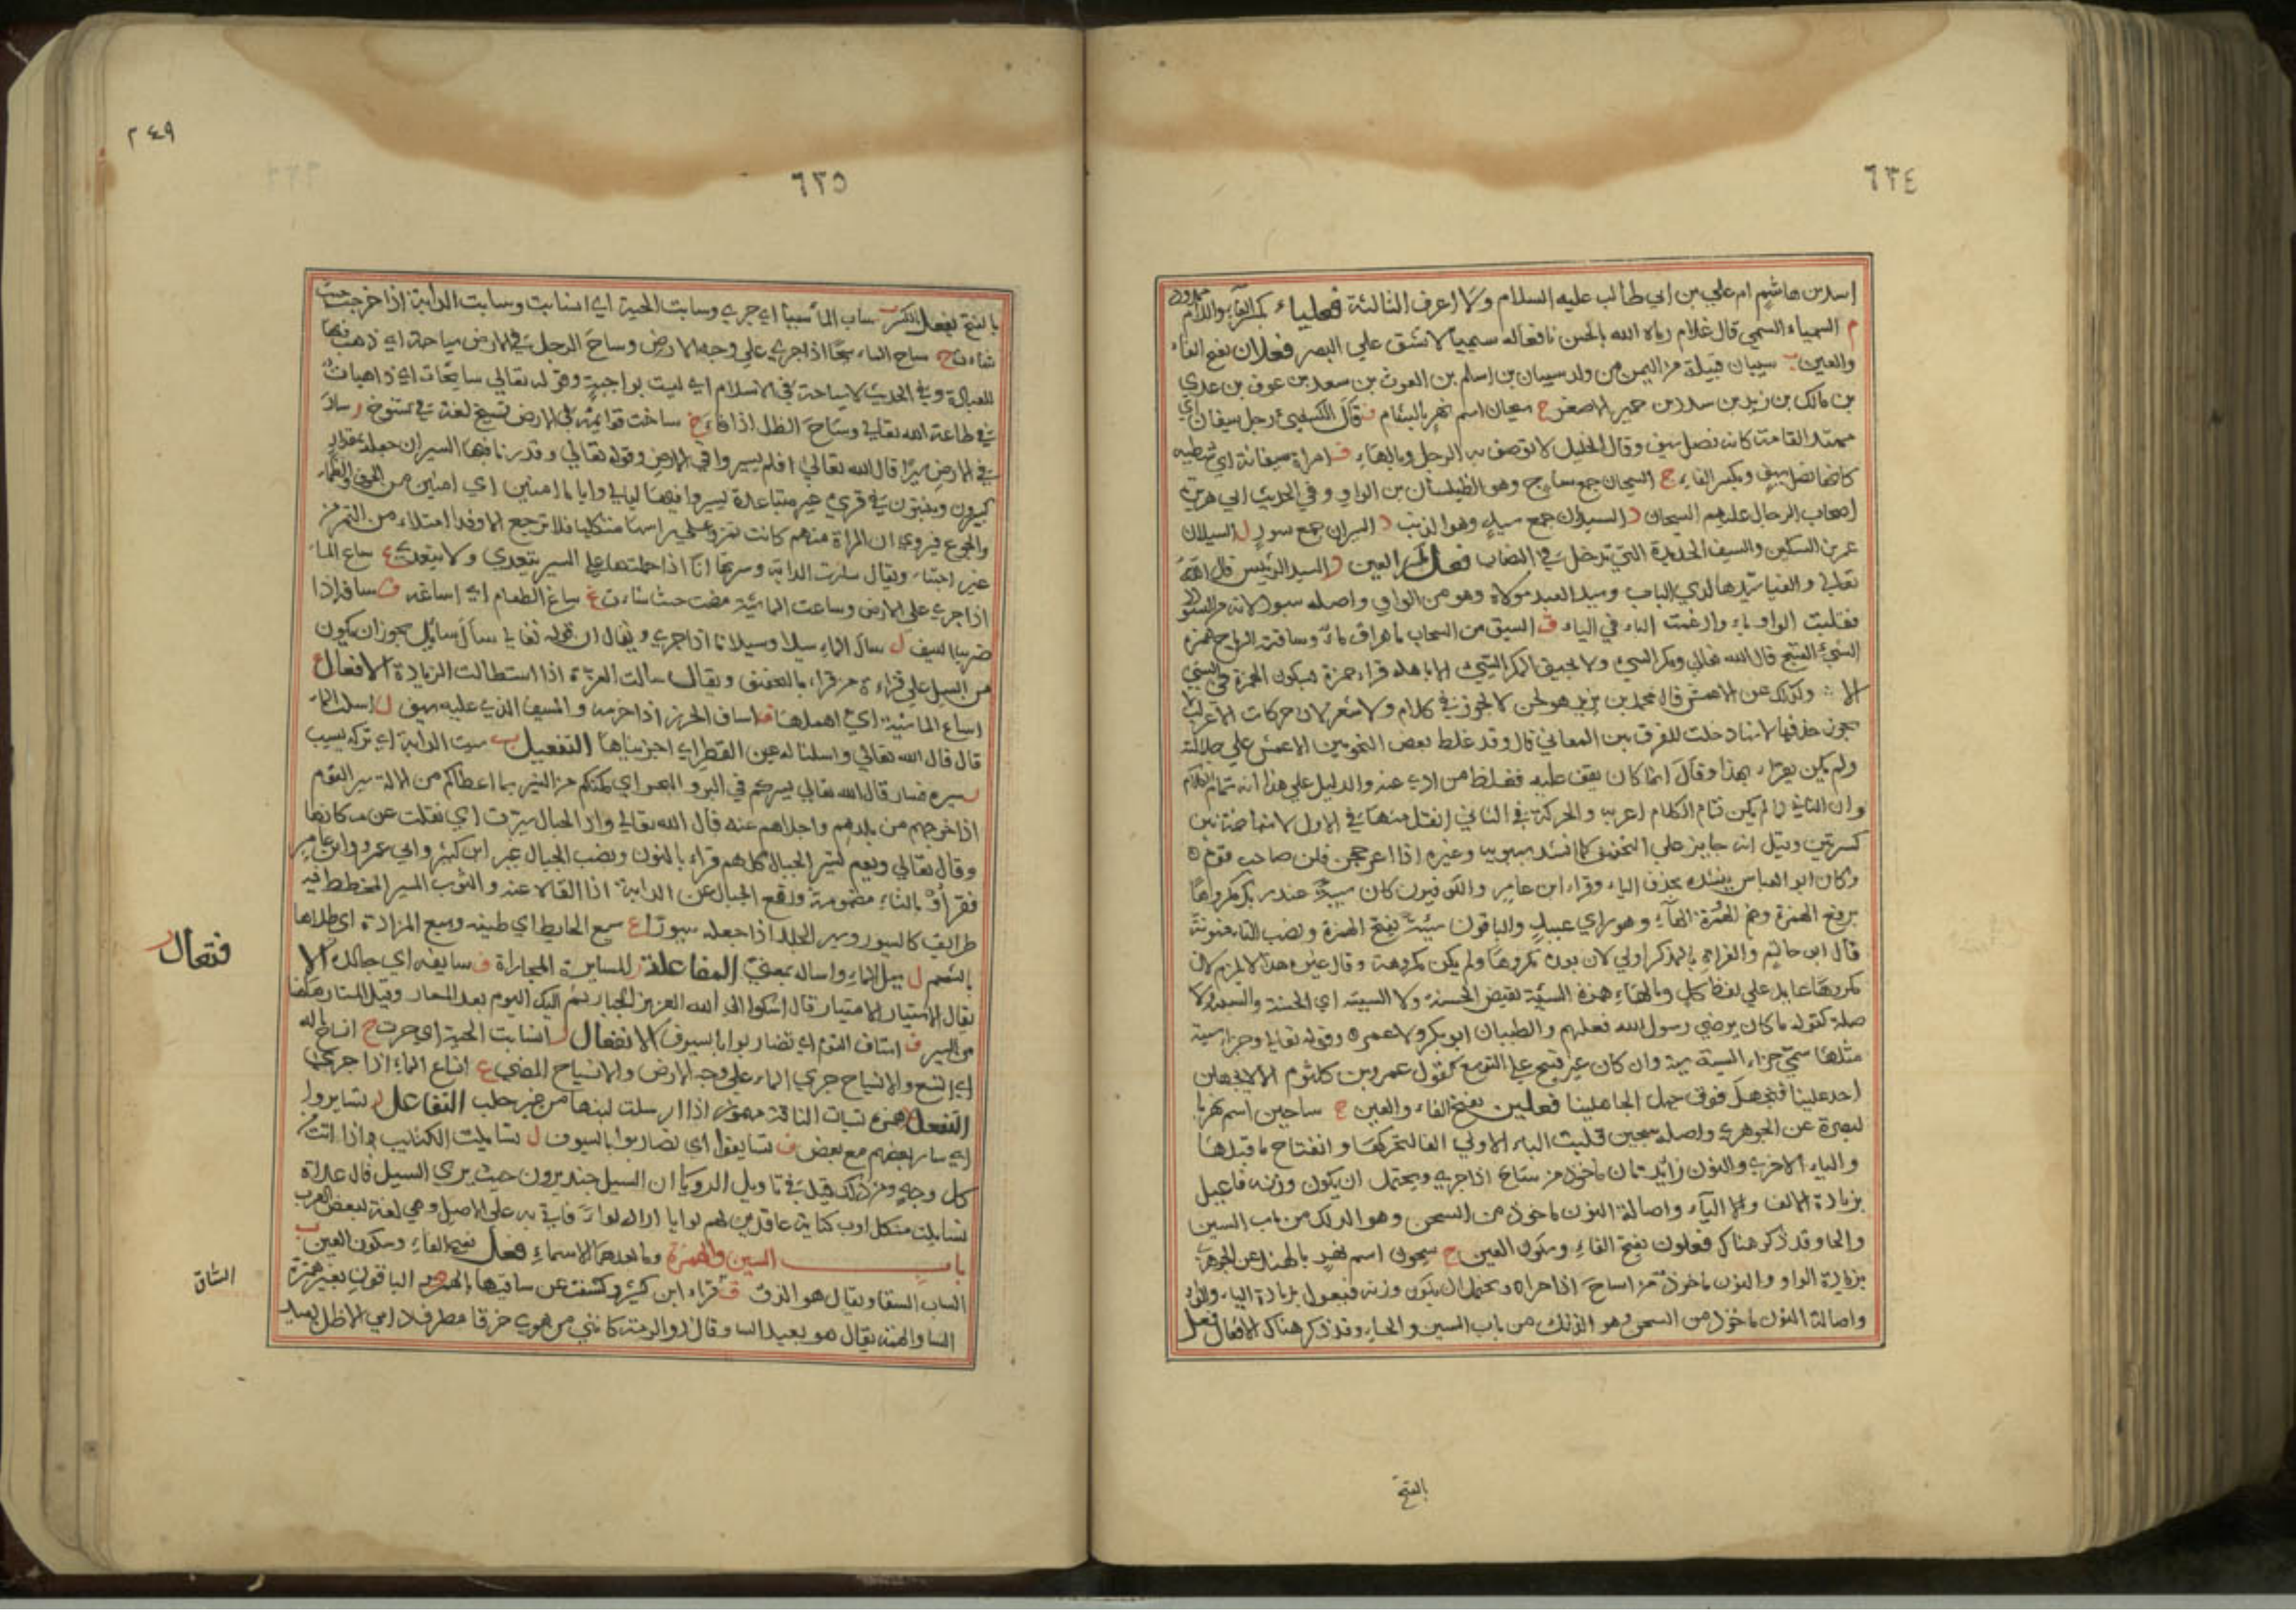 ٦٣٤
اسد بن هاشم ام علي بن ابي طالب عليه السلام ولا اعرف الثالثة فعلياء بكسر الفاء واللام ممدود
م السيمياء السيمى قال غلام رماه الله بالحسن يافعا له سيمياء لا تشق على البصر فعلان بفتح الفاء
والعين ب سيبان قبيلة من اليمن من ولد سيبان بن اسلم بن الغوث بن سعد بن عوف بن عدي
بن مالك بن زيد بن سدد بن حمير الاصغر ح سيحان اسم نهر بالشام ف قال الكسائي رجل سيفان اي
ممتد القامة كانه نصل سيف وقال الخليل لا توصف به الرجل وبالهاء ف امراة سيفانة اي شطبة
كانها نصل سيف وبكسر الفاء ح السيحان جمع ساج وهو الطيلسان من الواو وفي الحديث ابي هريرة
اصحاب الدجال عليهم السيجان د السيدان جمع سيد وهو الذئب ر السيران جمع سور ل السيلان
عن السكين والسيف الحديدة التي تدخل في النصاب فعل بكسر العين د السيد الرئيس قال الله
تعالى والفيا سيدها لدى الباب وسيد العبد مولاه وهو من الواو واصله سيود لانه من السودد
فقلبت الواو ياء وادغمت الياء في الياء ق السيق من السحاب ما هراق ماءه وساقته الريح همزة
السيئ القبيح قال الله تعالى ومكر السيئ ولا يحيق المكر السيئ الا باهله قراء حمزة بسكون الهمزة في السيئ
الا وكذلك عن الاعمش قال محمد بن يزيد هو لحن لا يجوز في كلام ولا شعر لان حركات الاعراب لا
يجوز حذفها لانها دخلت للفرق بين المعاني قال وقد غلط بعض النحويين الاعمش على جلالته
ولم يكن يقراء بهذا وقال انما كان يقف عليه فغلط من ادى عنه والدليل على هذا انه تمام الكلام
وان الثاني لما لم يكن تمام الكلام اعرب والحركة في الثاني اثقل منها في الاول لانها ضمة بين
كسرتين وقيل انه جايز على التخفيف كما انشد سيبويه وغيره اذا اعوججن قلن صاحب قوم
وكان ابو العباس ينشده بحذف الياء وقراء ابن عامر والكوفيون كان سيئه عند ربك مكروها
برفع الهمزة وضم الهاء وهو راي عبيد والباقون سيئة بفتح الهمزة ونصب التاء منونة
قال ابن حاتم والقراءة بالمذكر اولى لان بعده مكروها ولم يكن مكروهة وقال غيره هذا لا يلزم لان
مكروها عايد على لفظ كل وبالهاء همزة السيئة نقيض الحسنة ولا السيئة اي الحسنة والسيئة ولا
صلة كقوله ما كان يرضي رسول الله فعلهم والطيبان ابو بكر ولا عمر وقوله تعالى وجزاء سيئة
مثلها سمي جزاء السيئة سيئة وان كان غير قبيح على التوسع كقول عمرو بن كلثوم الا لا يجهلن
احد علينا فنجهل فوق جهل الجاهلينا فعلين بفتح الفاء والعين ح ساحين اسم نهر بالـ
لبصرة عن الجوهري واصله سيحين قلبت الياء الاولى الفا لتحركها وانفتاح ما قبلها
والياء الاخرى والنون زائدتان ماخوذ من ساح اذا جرى ويحتمل ان يكون وزنه فاعيل
بزيادة الالف والياء واصالة النون ماخوذ من السحن وهو الدلك من باب السين
والحا وقد ذكر هناك فعلون بفتح الفاء وسكون العين ح سيحون اسم نهر بالهند عن الجوهري
بزيادة الواو والنون ماخوذ من ساح اذا جرا ويحتمل ان يكون وزنه فيعول بزيادة الياء والواو
واصالة النون ماخوذ من السحن وهو الدلك من باب السين والحاء وقد ذكر هناك الافعال فعل
بالفتح
٢٤٩
٦٣٥
بالفتح يفعل بالكسر ب ساب الماء سيبا اي جرى وسابت الحية اي انسابت وسابت الدابة اذا خرجت حيث
شاءت ح ساح الماء سيحا اذا جرى على وجه الارض وساح الرجل في الارض سياحة اي ذهب فيها
للعبادة وفي الحديث لا سياحة في الاسلام اي ليست بواجبة وقوله تعالى سايحات اي ذاهبات
في طاعة الله تعالى وساح الظل اذا فاء خ ساخت قوائمه في الارض تسيخ لغة في تسوخ ر سار
في الارض سيرا قال الله تعالى افلم يسيروا في الارض وقوله تعالى وقدرنا فيها السير اي جعله بمقدار
يسيرون ويبيتون في قرى غير متباعدة سيروا فيها ليالي واياما امنين اي امنين من الخوف والظماء
والجوع فيروى ان المراة منهم كانت تمر وعلى راسها مكتلها فلا ترجع الا وقد امتلاء من الثمر من
غير اجتناء ويقال سارت الدابة وسرتها انا اذا حملتها على السير يتعدى ولا يتعدى ع ساع الماء
اذا جرى على الارض وساعت الماشية مضت حيث شاءت غ ساغ الطعام اي اساغه ف سافه اذا
ضربه بالسيف ل سال الماء سيلا وسيلانا اذا جرى ويقال ان قوله تعالى سال سايل يجوز ان يكون
من السيل على قراءة من قراء بالتخفيف ويقال سالت الغرة اذا استطالت الزيادة الافعال ع
اساع الماشية اي اهملها ف اساف الخرز اذا خرمه والمسيف الذي عليه سيف ل اسلت الماء
قال قال الله تعالى واسلنا له عين القطر اي اجريناها التفعيل ب سيب الدابة اي تركه يسيب
ر سيره فسار قال الله تعالى يسيركم في البر والبحر اي يمكنكم من السير بما اعطاكم من الالة سير القوم
اذا خرجهم من بلدهم واجلاهم عنه قال الله تعالى واذا الجبال سيرت اي نقلت عن مكانها
وقال تعالى ويوم نسير الجبال كلهم قراء بالنون ونصب الجبال غير ابن كثير وابي عمرو وابن عامر
فقراؤا بالتاء مضمومة ورفع الجبال عن الدابة اذا القاه عنه والثوب المسير المخطط فيه
طرايق كالسيور وسير الجلد اذا جعله سيورا ع سيع الحايط اي طينه وسيع المزادة اي طلاها
بالشحم ل سيل الماء واساله بمعنى المفاعلة ر المسايرة المجاراة ف سايفه اي جالده الا
فتعال ر
يقال الاستيار الامتيار قال اشكوا الى الله العزيز الجبار ثم اليك اليوم بعد المستار وقيل المستار هاهنا
من السير ف استاف القوم اي تضاربوا بالسيوف الانفعال ب انسابت الحية اي جرت ح انساح باله
اي اتسع والانسياح جري الماء على وجه الارض والانسياح المضي ع انساع الماء اذا جرى
التفعل همزة تسيات الناقة مهموز اذا ارسلت لبنها من غير حلب التفاعل ر تسايروا
اي ساير بعضهم مع بعض ف تسايفوا اي تضاربوا بالسيوف ل تسايلت الكتائب اذا اتت
كل وجه ومن ذلك قيل في تاويل الرويا ان السيل جند يرون حيث يرى السيل قال
باب السين والهمزة وما بعدهما الاسماء فعل بفتح الفاء وسكون العين ب
الساب السقا ويقال هو الزق ق قراء ابن كثير وكشفت عن ساقيها بالهمز الباقون بغير همزة
الساق
الساو الهمة يقال هو بعيد الساو وقال ذو الرمة كانني من هوى خرقا مطرف دامي الاظل بعيد